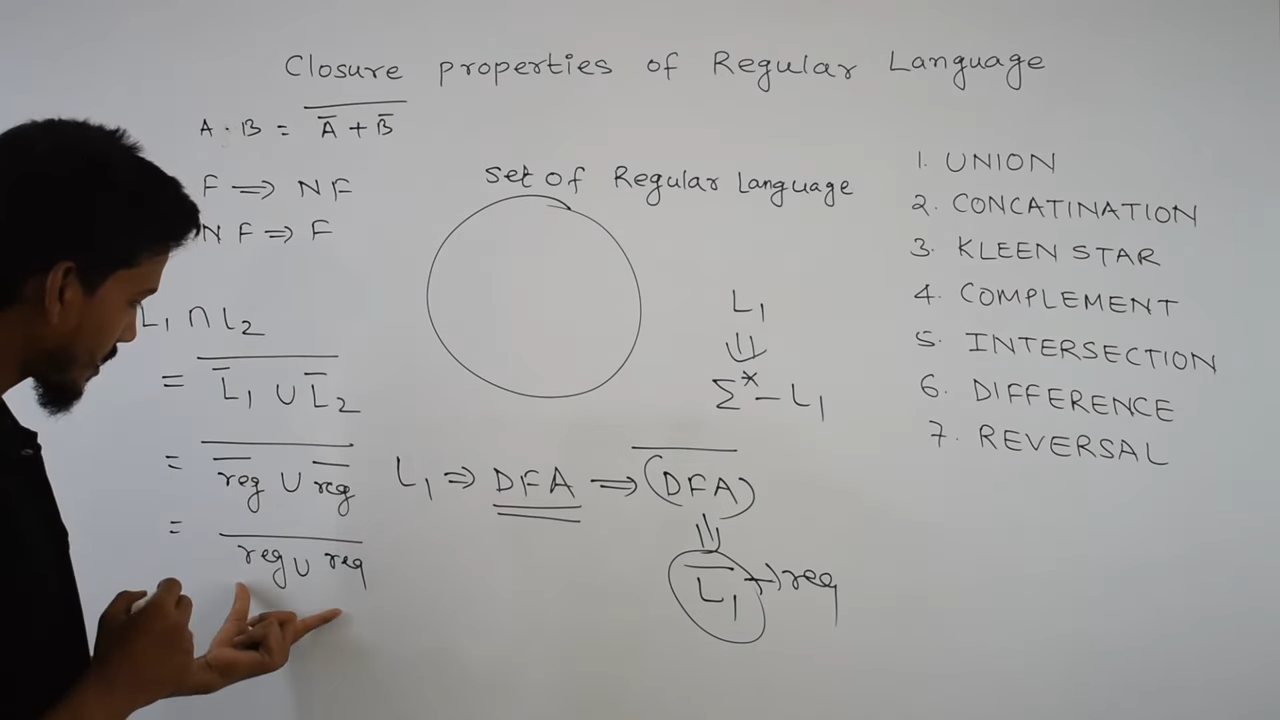 Closure properties of Regular Language
A · B = \overline{\overline{A} + \overline{B}}
F ⟹ NF
NF ⟹ F
Set of Regular Language
L₁ ∩ L₂
= \overline{\overline{L}₁ ∪ \overline{L}₂}
= \overline{\overline{reg} ∪ \overline{reg}}
= \overline{reg ∪ reg}
L₁
⇓
Σ* - L₁
L₁ ⟹ DFA ⟹ \overline{(DFA)}
⇓
\overline{L₁} → reg
1. UNION
2. CONCATINATION
3. KLEEN STAR
4. COMPLEMENT
5. INTERSECTION
6. DIFFERENCE
7. REVERSAL